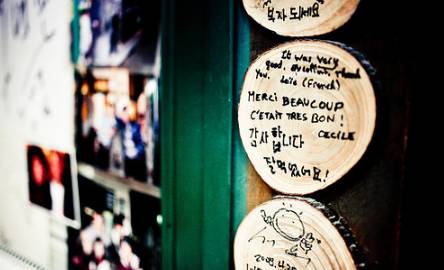 부자 되세요
It was very
good, thank
You. Loïc (French)
MERCI BEAUCOUP
C'ETAIT TRES BON !
CECILE
감사합니다
잘 먹었어요!
2009.4.20